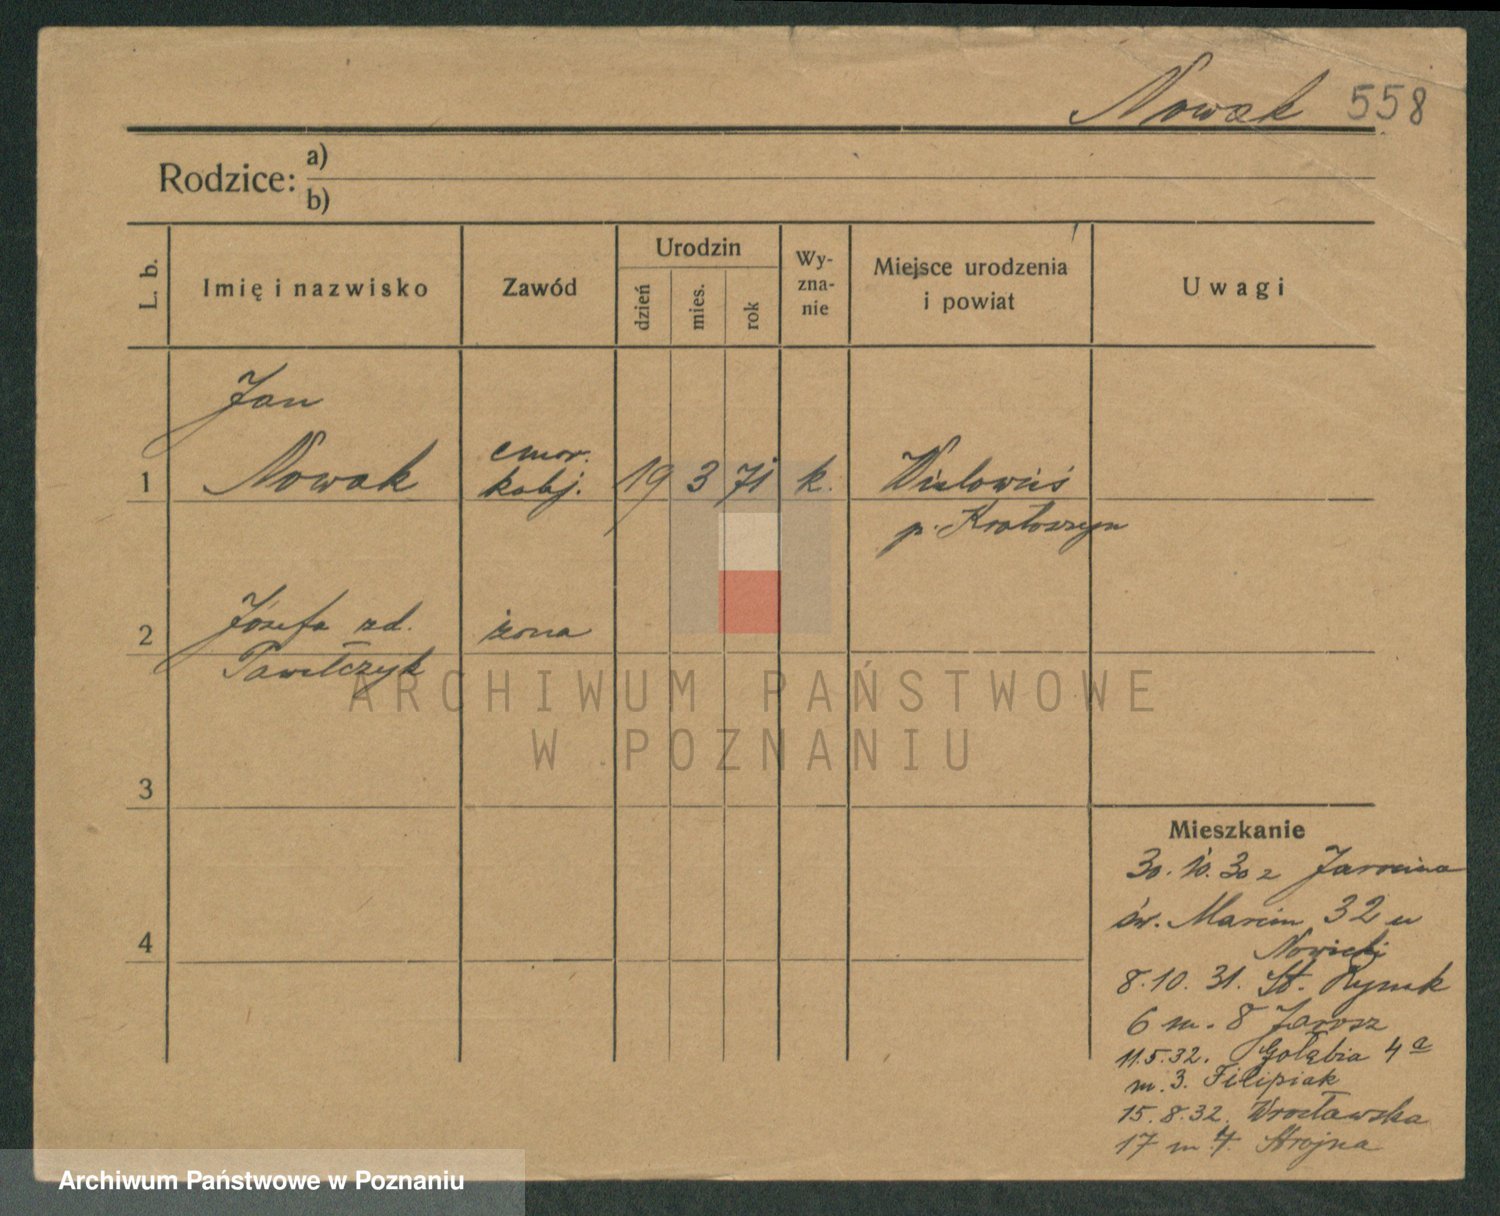 Nowak 558
Rodzice: a)
b)
L. b.
Imię i nazwisko
Zawód
Urodzin
dzień
mies.
rok
Wy-
zna-
nie
Miejsce urodzenia
i powiat
Uwagi
Jan
1 Nowak emer. kolej. 19 3 71 k. Wielowieś
p. Krotoszyn
2 Józefa zd. żona
Pawełczyk
3
4
Mieszkanie
30.10.30 z Jarocina
św. Marcin 32 u
Nowicki
8.10.31. St. Rynek
6 m. 8 Jarosz
11.5.32. Gołębia 4a
m. 3. Filipiak
15.8.32. Wrocławska
17 m 7. Strojna
ARCHIWUM PAŃSTWOWE
W POZNANIU
Archiwum Państwowe w Poznaniu